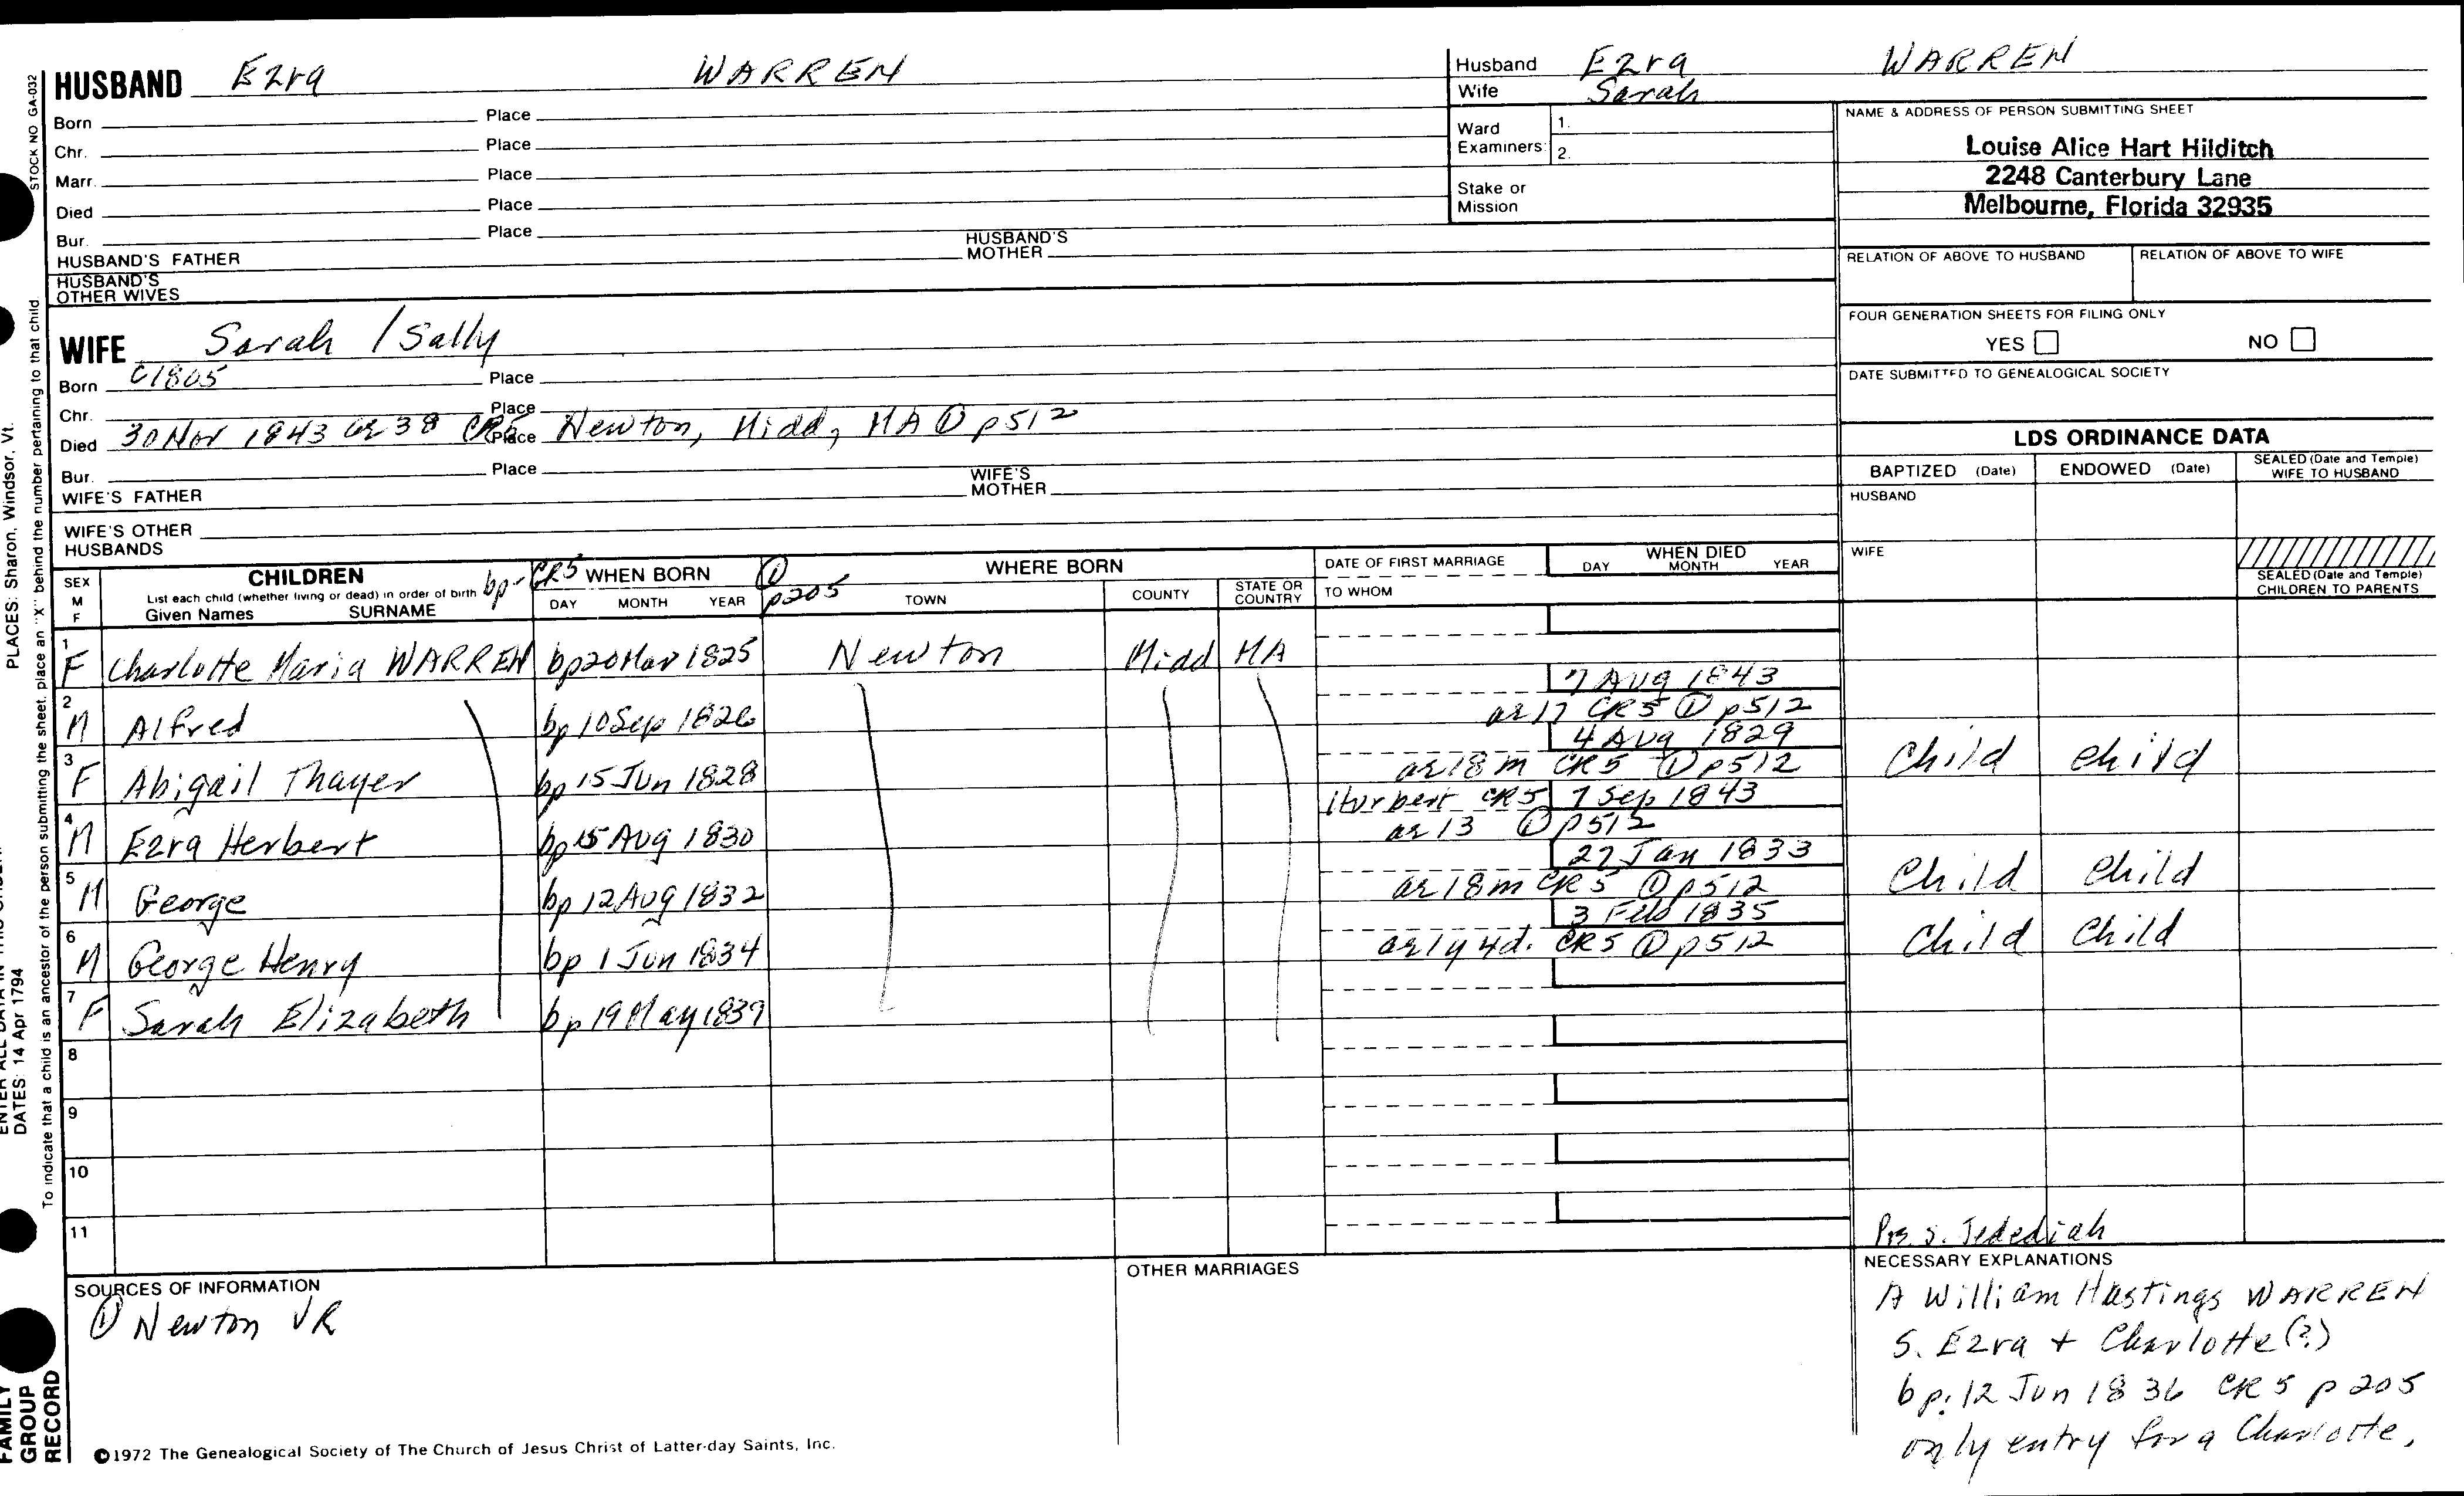 HUSBAND Ezra WARREN
Born Place
Chr. Place
Marr. Place
Died Place
Bur. Place
HUSBAND'S FATHER HUSBAND'S MOTHER
HUSBAND'S OTHER WIVES
Husband Ezra WARREN
Wife Sarah
Ward Examiners: 1.
2.
Stake or Mission
NAME & ADDRESS OF PERSON SUBMITTING SHEET
Louise Alice Hart Hilditch
2248 Canterbury Lane
Melbourne, Florida 32935
RELATION OF ABOVE TO HUSBAND RELATION OF ABOVE TO WIFE
FOUR GENERATION SHEETS FOR FILING ONLY
YES NO
DATE SUBMITTED TO GENEALOGICAL SOCIETY
WIFE Sarah / Sally
Born c1805 Place
Chr. Place
Died 30 Nov 1843 ae 38 CR5 Place Newton, Midd, MA ① p512
Bur. Place
WIFE'S FATHER WIFE'S MOTHER
WIFE'S OTHER HUSBANDS
LDS ORDINANCE DATA
BAPTIZED (Date) ENDOWED (Date) SEALED (Date and Temple) WIFE TO HUSBAND
HUSBAND
WIFE
SEALED (Date and Temple) CHILDREN TO PARENTS
SEX M F
CHILDREN
List each child (whether living or dead) in order of birth
Given Names SURNAME
bp-CR5 WHEN BORN ① p205
DAY MONTH YEAR
WHERE BORN
TOWN COUNTY STATE OR COUNTRY
DATE OF FIRST MARRIAGE
TO WHOM
WHEN DIED
DAY MONTH YEAR
1 F Charlotte Maria WARREN bp 20 Mar 1825 Newton Midd MA
2 M Alfred bp 10 Sep 1826 7 Aug 1843
ae 17 CR5 ① p512
3 F Abigail Thayer bp 15 Jun 1828 4 Aug 1829
ae 18 m CR5 ① p512 Child Child
4 M Ezra Herbert bp 15 Aug 1830 Hurbert CR5 7 Sep 1843
ae 13 ① p512
5 M George bp 12 Aug 1832 27 Jan 1833
ae 18m CR5 ① p512 Child Child
6 M George Henry bp 1 Jun 1834 3 Feb 1835
ae 1y 4d. CR5 ① p512 Child Child
7 F Sarah Elizabeth bp 19 May 1839
8
9
10
11
Prs s. Jedediah
SOURCES OF INFORMATION
① Newton VR
OTHER MARRIAGES
NECESSARY EXPLANATIONS
A William Hastings WARREN
S. Ezra + Charlotte (?)
bp: 12 Jun 1836 CR5 p 205
only entry for a Charlotte.
©1972 The Genealogical Society of The Church of Jesus Christ of Latter-day Saints, Inc.
STOCK NO GA-032
To indicate that a child is an ancestor of the person submitting the sheet, place an "X" behind the number pertaining to that child
PLACES: Sharon, Windsor, Vt.
DATES: 14 Apr 1794
FAMILY GROUP RECORD